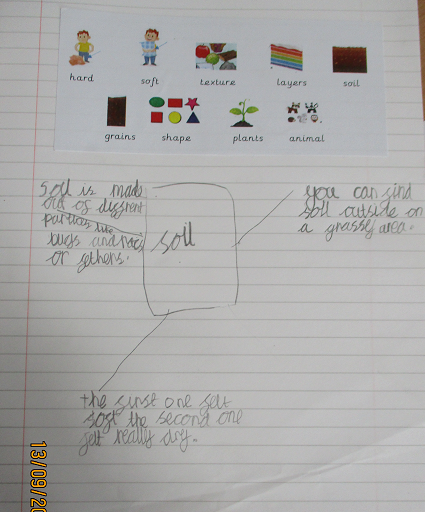 hard
soft
texture
layers
soil
grains
shape
plants
animal
soil is made
out of different
particles like
bugs and
or
soil
you can find
soil outside on
a grassy area.
the first one felt
soft the second one
felt really dry.
13/09/20